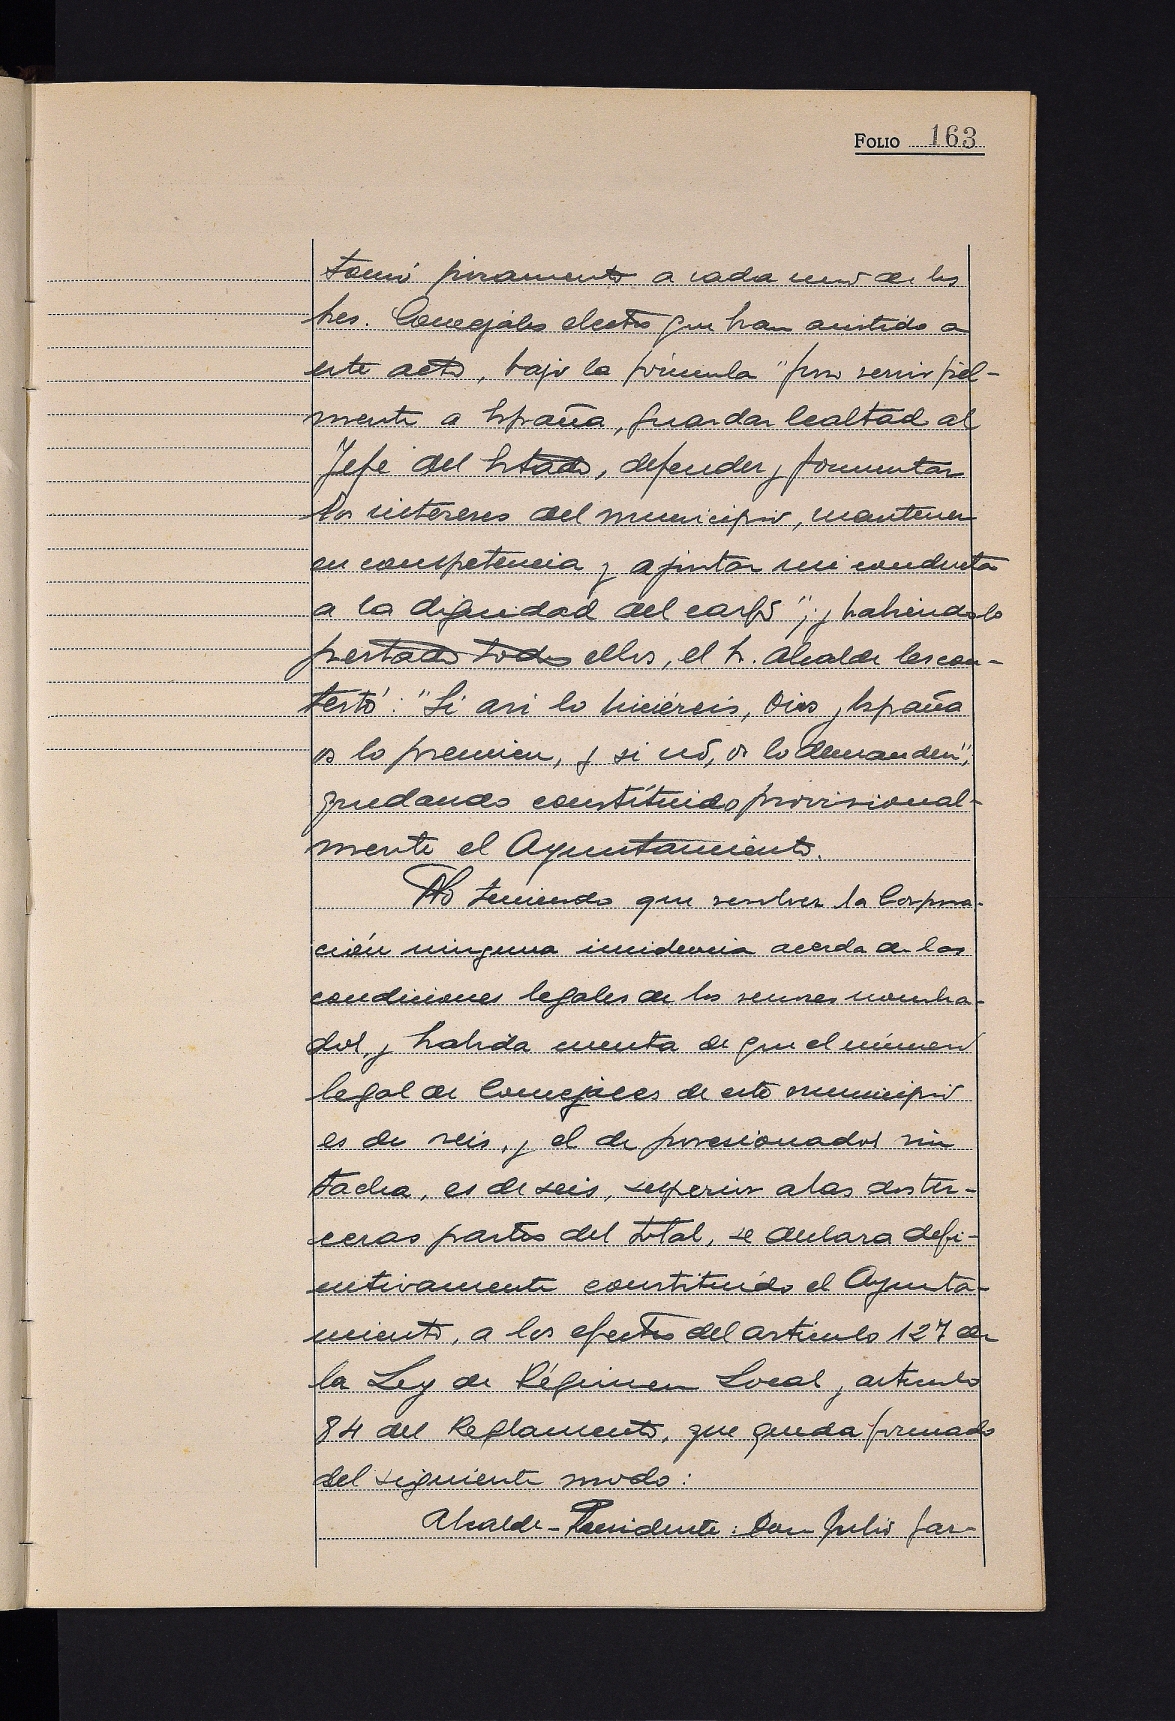 FOLIO 163
tomó juramento a cada uno de los
Sres. Concejales electos que han asistido a
este acto, bajo la fórmula "Juro servir fiel-
mente a España, guardar lealtad al
Jefe del Estado, defender y fomentar
los intereses del municipio, mantener
su competencia y ajustar mi conducta
a la dignidad del cargo"; y habiéndolo
prestado todos ellos, el Sr. Alcalde les con-
testó: "Si así lo hiciéreis, Dios y España
os lo premien, y si nó, os lo demanden",
quedando constituido provisional-
mente el Ayuntamiento.
No teniendo que resolver la Corpora-
ción ninguna incidencia acerca de las
condiciones legales de los señores nombra-
dos, y habida cuenta de que el número
legal de Concejales de este municipio
es de seis, y el de posesionados sin
tacha, es de seis, superior a las dos ter-
ceras partes del total, se declara defi-
nitivamente constituído el Ayunta-
miento, a los efectos del artículo 127 de
la Ley de Régimen Local y artículo
84 del Reglamento, que queda formado
del siguiente modo:
Alcalde-Presidente: Don Julio Gar-